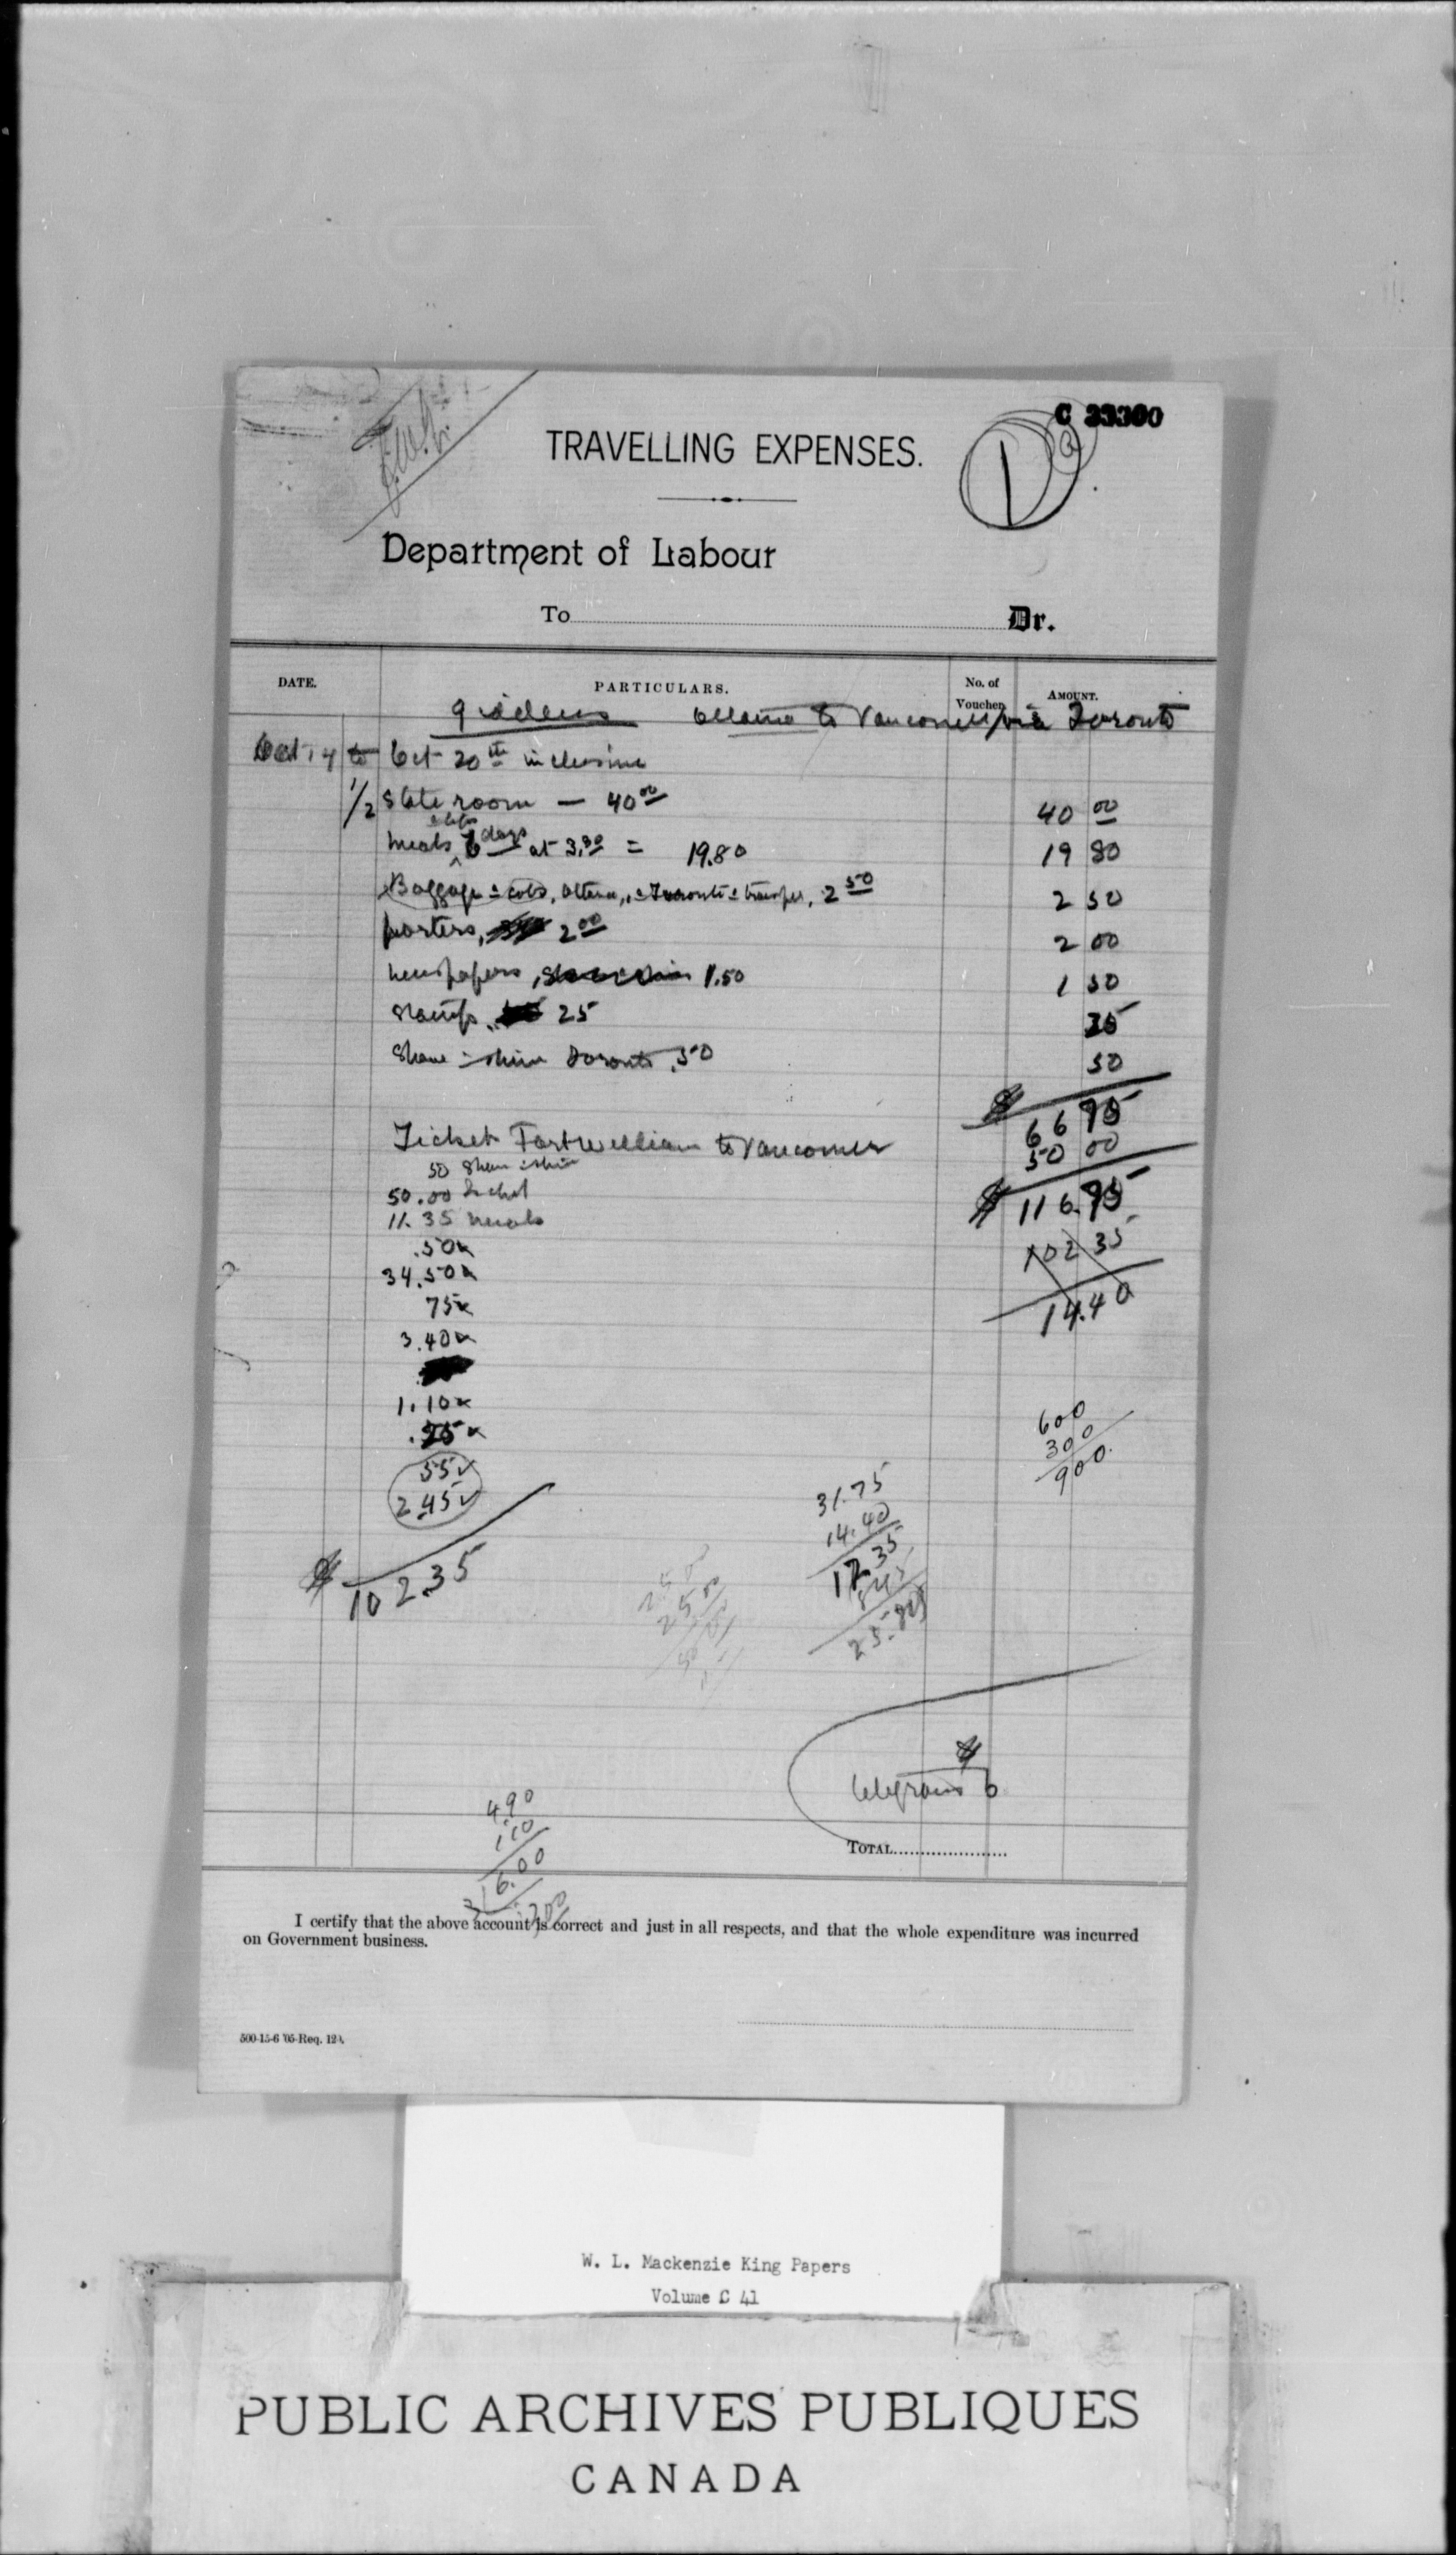 C 23300
TRAVELLING EXPENSES.
1
a
Department of Labour
To Dr.
DATE. PARTICULARS. No. of Voucher. AMOUNT.
Giddens Ottawa to Vancouver via Toronto
Oct 14 to Oct 20th inclusive
1/2 State room — 40 00 40 00
meals & tips 6 days at 3.30 = 19.80 19 80
Baggage & cabs, Ottawa, & Toronto & transfer, 2 50 2 50
porters, 2 00 2 00
newspapers, 1.50 1 50
Stamps, 25 25
Shave & shine Toronto, .50 50
$ 66 95
Ticket Fort William to Vancouver 50 00
50 Shave & shine
50.00 Ticket $ 116.95
11.35 meals
.50x 102 35
34.50x
75x 14.40
3.40x
1.10x 600
.25x 300
55 900.
2.45 31.75
14.40
$ 102.35 17.35
845
25.80
$
telegrams 6
490
110
6.00
TOTAL
I certify that the above account is correct and just in all respects, and that the whole expenditure was incurred
on Government business.
500-15-6 '05-Req. 124.
W. L. Mackenzie King Papers
Volume C 41
PUBLIC ARCHIVES PUBLIQUES
CANADA